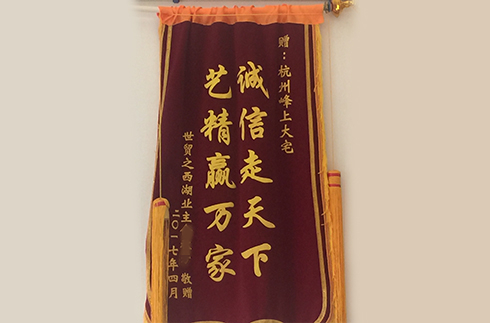 赠：杭州峰上大宅
诚信走天下
艺精赢万家
世贸之西湖业主 敬赠
二〇一七年四月